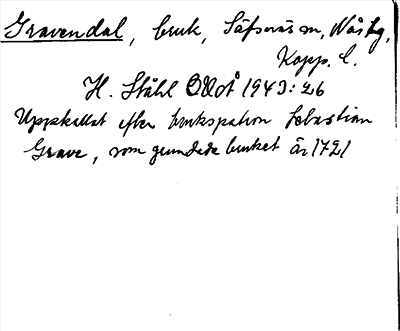 Gravendal, bruk, Säfsnäs sn, Nås tg,
Kopp. l.
H. Ståhl OUÅ 1943:26
Uppkallat efter brukspatron Sebastian
Grave, som grundade bruket år 1721